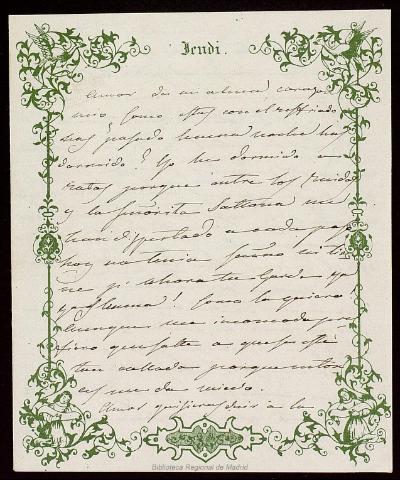 Jeudi.
Amor de mi alma corazon
mio. Como estas con el resfriado
has pasado buena noche has
dormido? Yo he dormido a
ratos porque entre los ruidos
y la Señorita me
han dispertado a cada paso
hoy no tenia sueño ni
ahora tu Gorda ya
y Como la quiero!
aunque me incomoda pre
fiero que salte a que este
tan callada porque enton
ces me da miedo.
Amor quisieras decir a la
Biblioteca Regional de Madrid